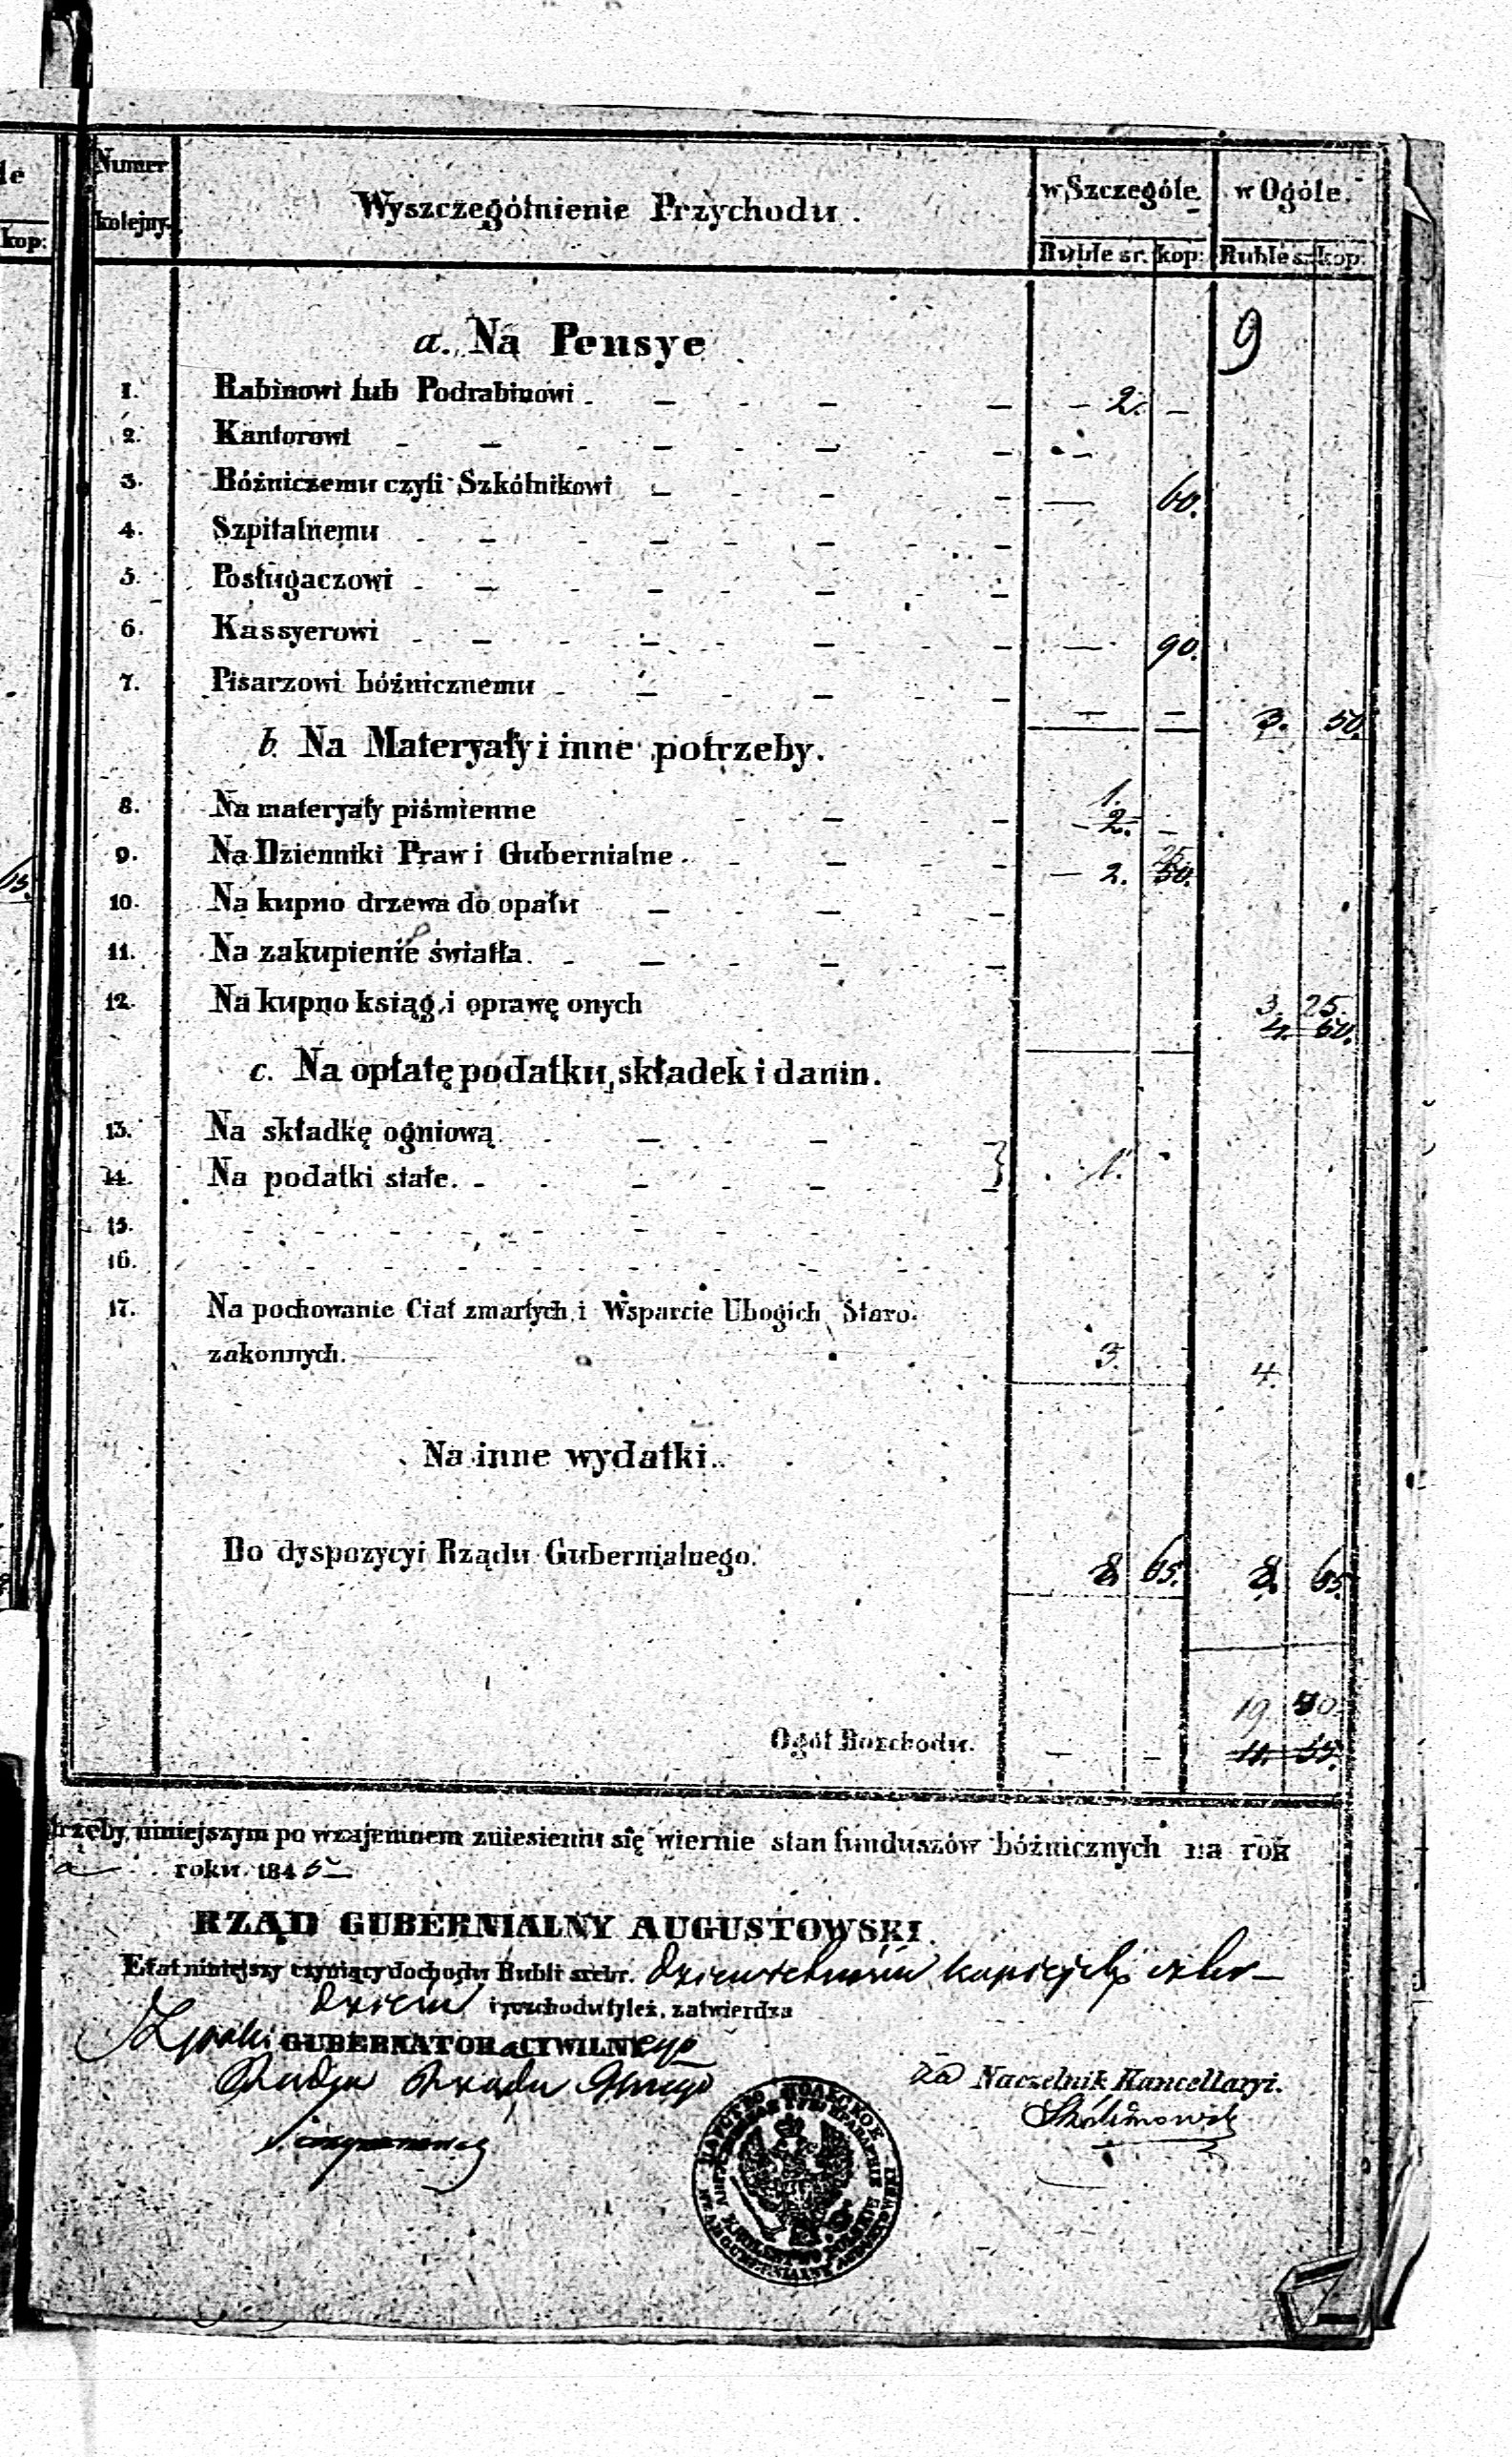 le
kop:
Numer kolejny.
Wyszczególnienie Przychodu.
w Szczególe.
w Ogóle.
Ruble sr. kop: Ruble sr. kop:
9
a. Na Pensye
1. Rabinowi lub Podrabinowi - 2. -
2. Kantorowi -
3. Bóźniczemu czyli Szkólnikowi - 60.
4. Szpitalnemu
5. Posługaczowi
6. Kassyerowi - 90.
7. Pisarzowi bóźnicznemu - - 3. 50.
b. Na Materyały i inne potrzeby.
1.
8. Na materyały piśmienne - 2. -
25.
9. Na Dzienniki Praw i Gubernialne - 2. 50.
10. Na kupno drzewa do opału
11. Na zakupienie światła.
12. Na kupno ksiąg i oprawę onych 3. 25.
4. 50.
c. Na opłatę podatku, składek i danin.
13. Na składkę ogniową
14. Na podatki stałe. } 1.
15.
16.
17. Na pochowanie Ciał zmarłych i Wsparcie Ubogich Staro-
zakonnych. 3. 4.
Na inne wydatki.
Do dyspozycyi Rządu Gubernialnego. 8. 65. 8. 65.
19 40.
Ogół Rozchodu. - -
trzęby, niniejszym po wzajemnem zniesieniu się wiernie stan funduszów bóżnicznych na rok
roku 1845
RZĄD GUBERNIALNY AUGUSTOWSKI.
Etat niniejszy czyniący dochodu Rubli srebr. dziewietnaście kopiejek czter-
dzieści i rozchodu tyleż, zatwierdza
GUBERNATORA CYWILNEgo
Radca Rządu
za Naczelnik Kancellaryi.